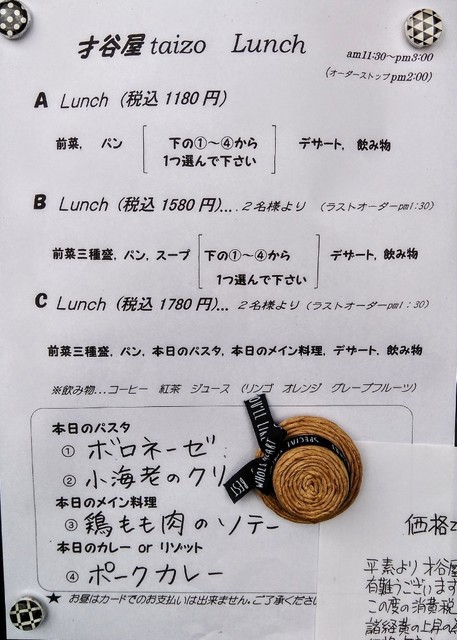 才谷屋 taizo Lunch
am11:30~pm3:00
(オーダーストップpm2:00)
A Lunch (税込 1180 円)
前菜, パン 下の①~④から デザート, 飲み物
1つ選んで下さい
B Lunch (税込 1580 円)... 2名様より (ラストオーダーpm1:30)
前菜三種盛, パン, スープ 下の①~④から デザート, 飲み物
1つ選んで下さい
C Lunch (税込 1780 円)... 2名様より (ラストオーダーpm1:30)
前菜三種盛, パン, 本日のパスタ, 本日のメイン料理, デザート, 飲み物
※飲み物...コーヒー 紅茶 ジュース (リンゴ オレンジ グレープフルーツ)
本日のパスタ
① ボロネーゼ
② 小海老のクリ
本日のメイン料理
③ 鶏もも肉のソテー
本日のカレー or リゾット
④ ポークカレー
★ お昼はカードでのお支払いは出来ません。ご了承ください
YOU'LL LIKE
SPECIAL
WHOLEHEART
BEST
価格
平素より才谷屋
有難うございます
この度の消費税
諸経費の上昇の